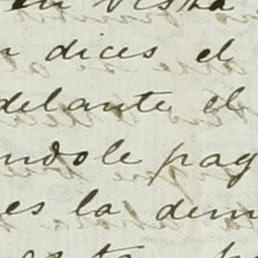 en vista
dices el
delante el
ndole pag
es la dem